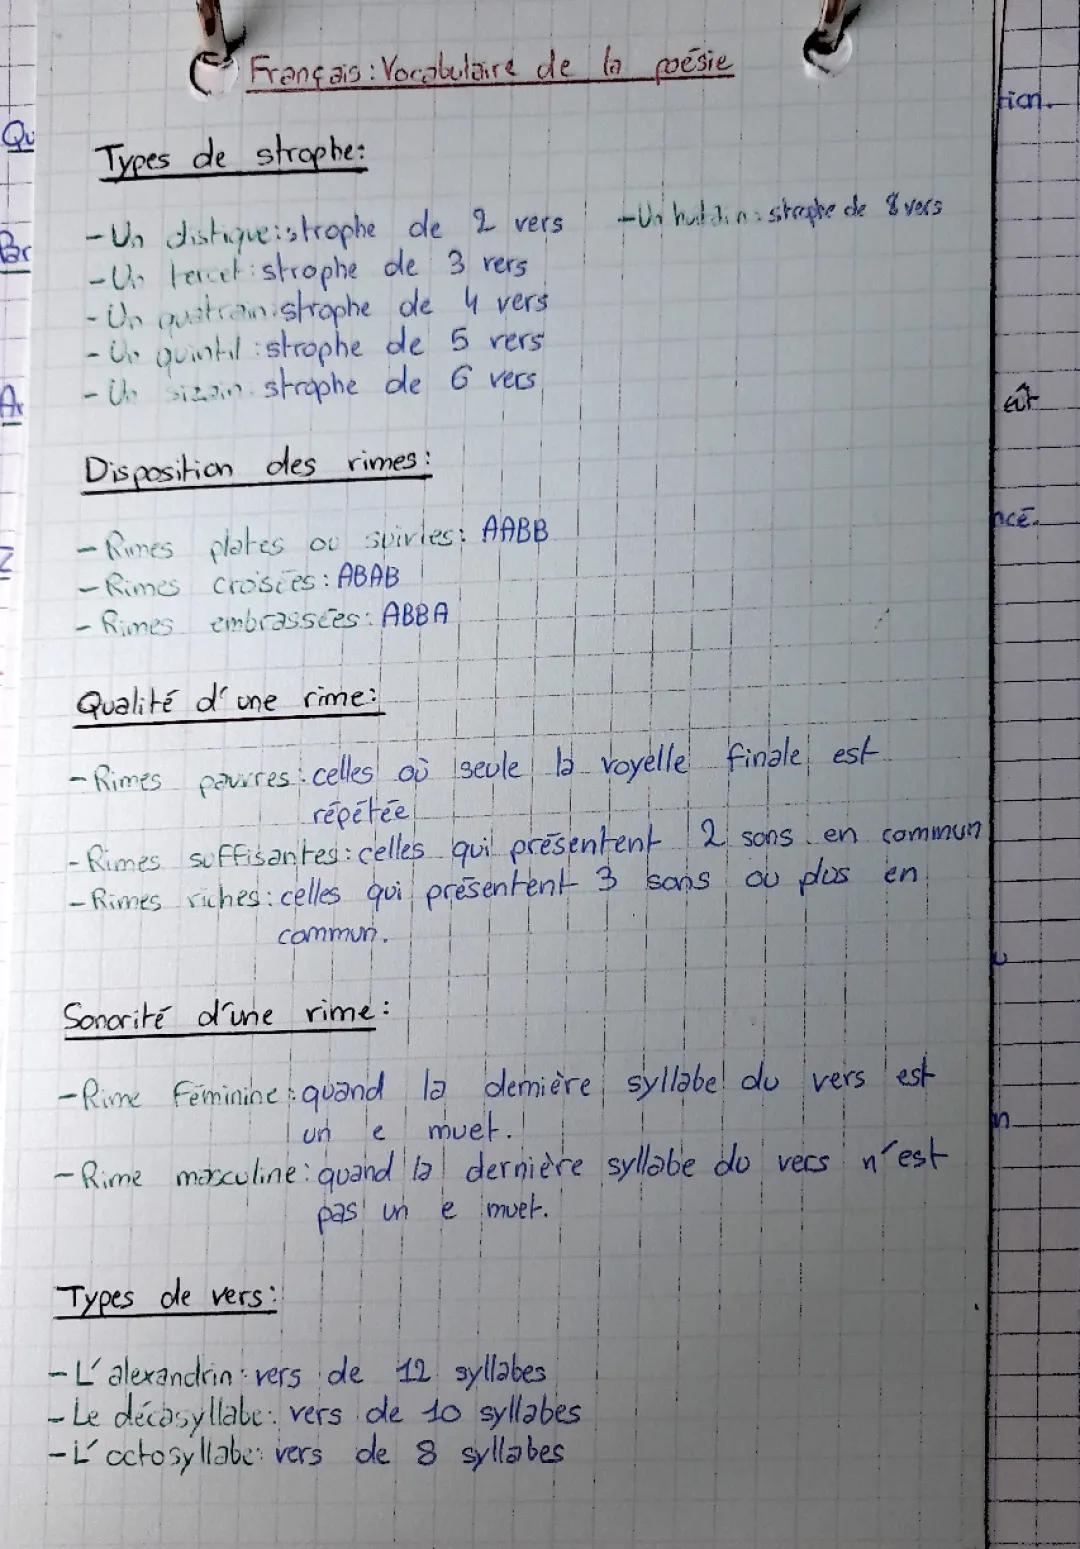 Français : Vocabulaire de la poésie
Types de strophe:
- Un distique : strophe de 2 vers
- Un huitain : strophe de 8 vers
- Un tercet : strophe de 3 vers
- Un quatrain : strophe de 4 vers
- Un quintil : strophe de 5 vers
- Un sizain : strophe de 6 vers
Disposition des rimes :
- Rimes plates ou suivies : AABB
- Rimes croisées : ABAB
- Rimes embrassées : ABBA
Qualité d'une rime :
- Rimes pauvres : celles où seule la voyelle finale est
répétée
- Rimes suffisantes : celles qui présentent 2 sons en commun
- Rimes riches : celles qui présentent 3 sons ou plus en
commun.
Sonorité d'une rime :
- Rime féminine : quand la dernière syllabe du vers est
un e muet.
- Rime masculine : quand la dernière syllabe du vers n'est
pas un e muet.
Types de vers :
- L'alexandrin : vers de 12 syllabes
- Le décasyllabe : vers de 10 syllabes
- L'octosyllabe : vers de 8 syllabes